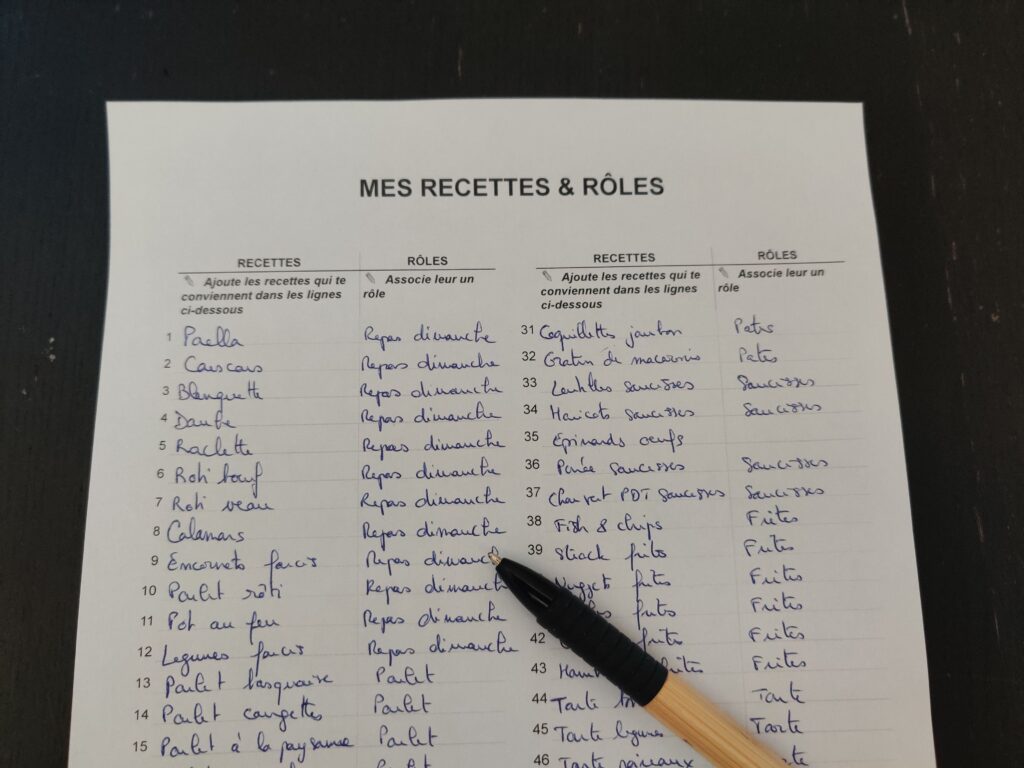 MES RECETTES & RÔLES
RECETTES RÔLES
Ajoute les recettes qui te conviennent dans les lignes ci-dessous
Associe leur un rôle
1 Paella Repas dimanche
2 Couscous Repas dimanche
3 Blanquette Repas dimanche
4 Daube Repas dimanche
5 Raclette Repas dimanche
6 Roti boeuf Repas dimanche
7 Roti veau Repas dimanche
8 Calamars Repas dimanche
9 Encornets farcis Repas dimanch
10 Poulet rôti Repas dimanche
11 Pot au feu Repas dimanche
12 Legumes farcis Repas dimanche
13 Poulet basquaise Poulet
14 Poulet courgettes Poulet
15 Poulet à la paysanne Poulet
RECETTES RÔLES
Ajoute les recettes qui te conviennent dans les lignes ci-dessous
Associe leur un rôle
31 Coquillettes jambon Pates
32 Gratin de macaronis Pates
33 Lentilles saucisses Saucisses
34 Haricots saucisses Saucisses
35 Epinards oeufs
36 Purée saucisses Saucisses
37 Chou vert PDT saucisses Saucisses
38 Fish & chips Frites
39 Steack frites Frites
Nugget frites Frites
frites Frites
42 frites Frites
43 frites Frites
44 Tarte Tarte
45 Tarte legumes Tarte
46 Tarte